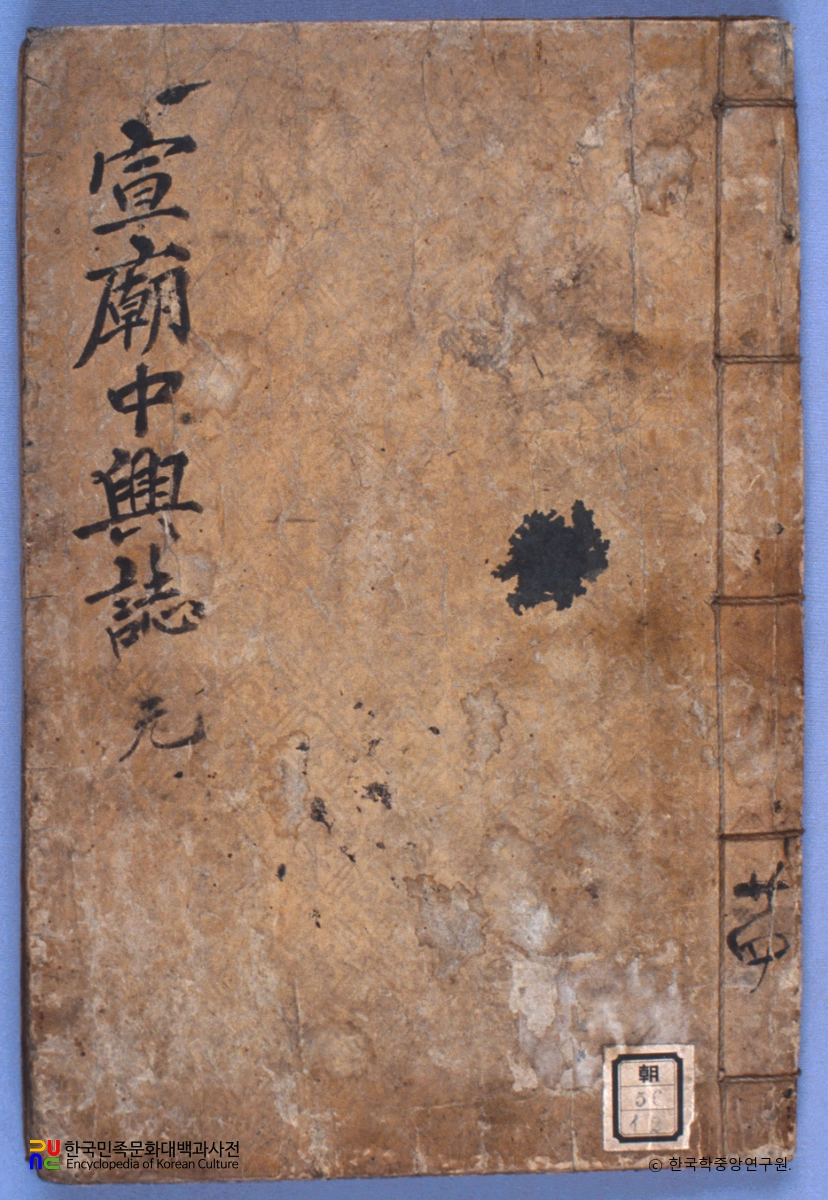 宣廟中興誌 元
共四
朝
한국민족문화대백과사전
Encyclopedia of Korean Culture
© 한국학중앙연구원.